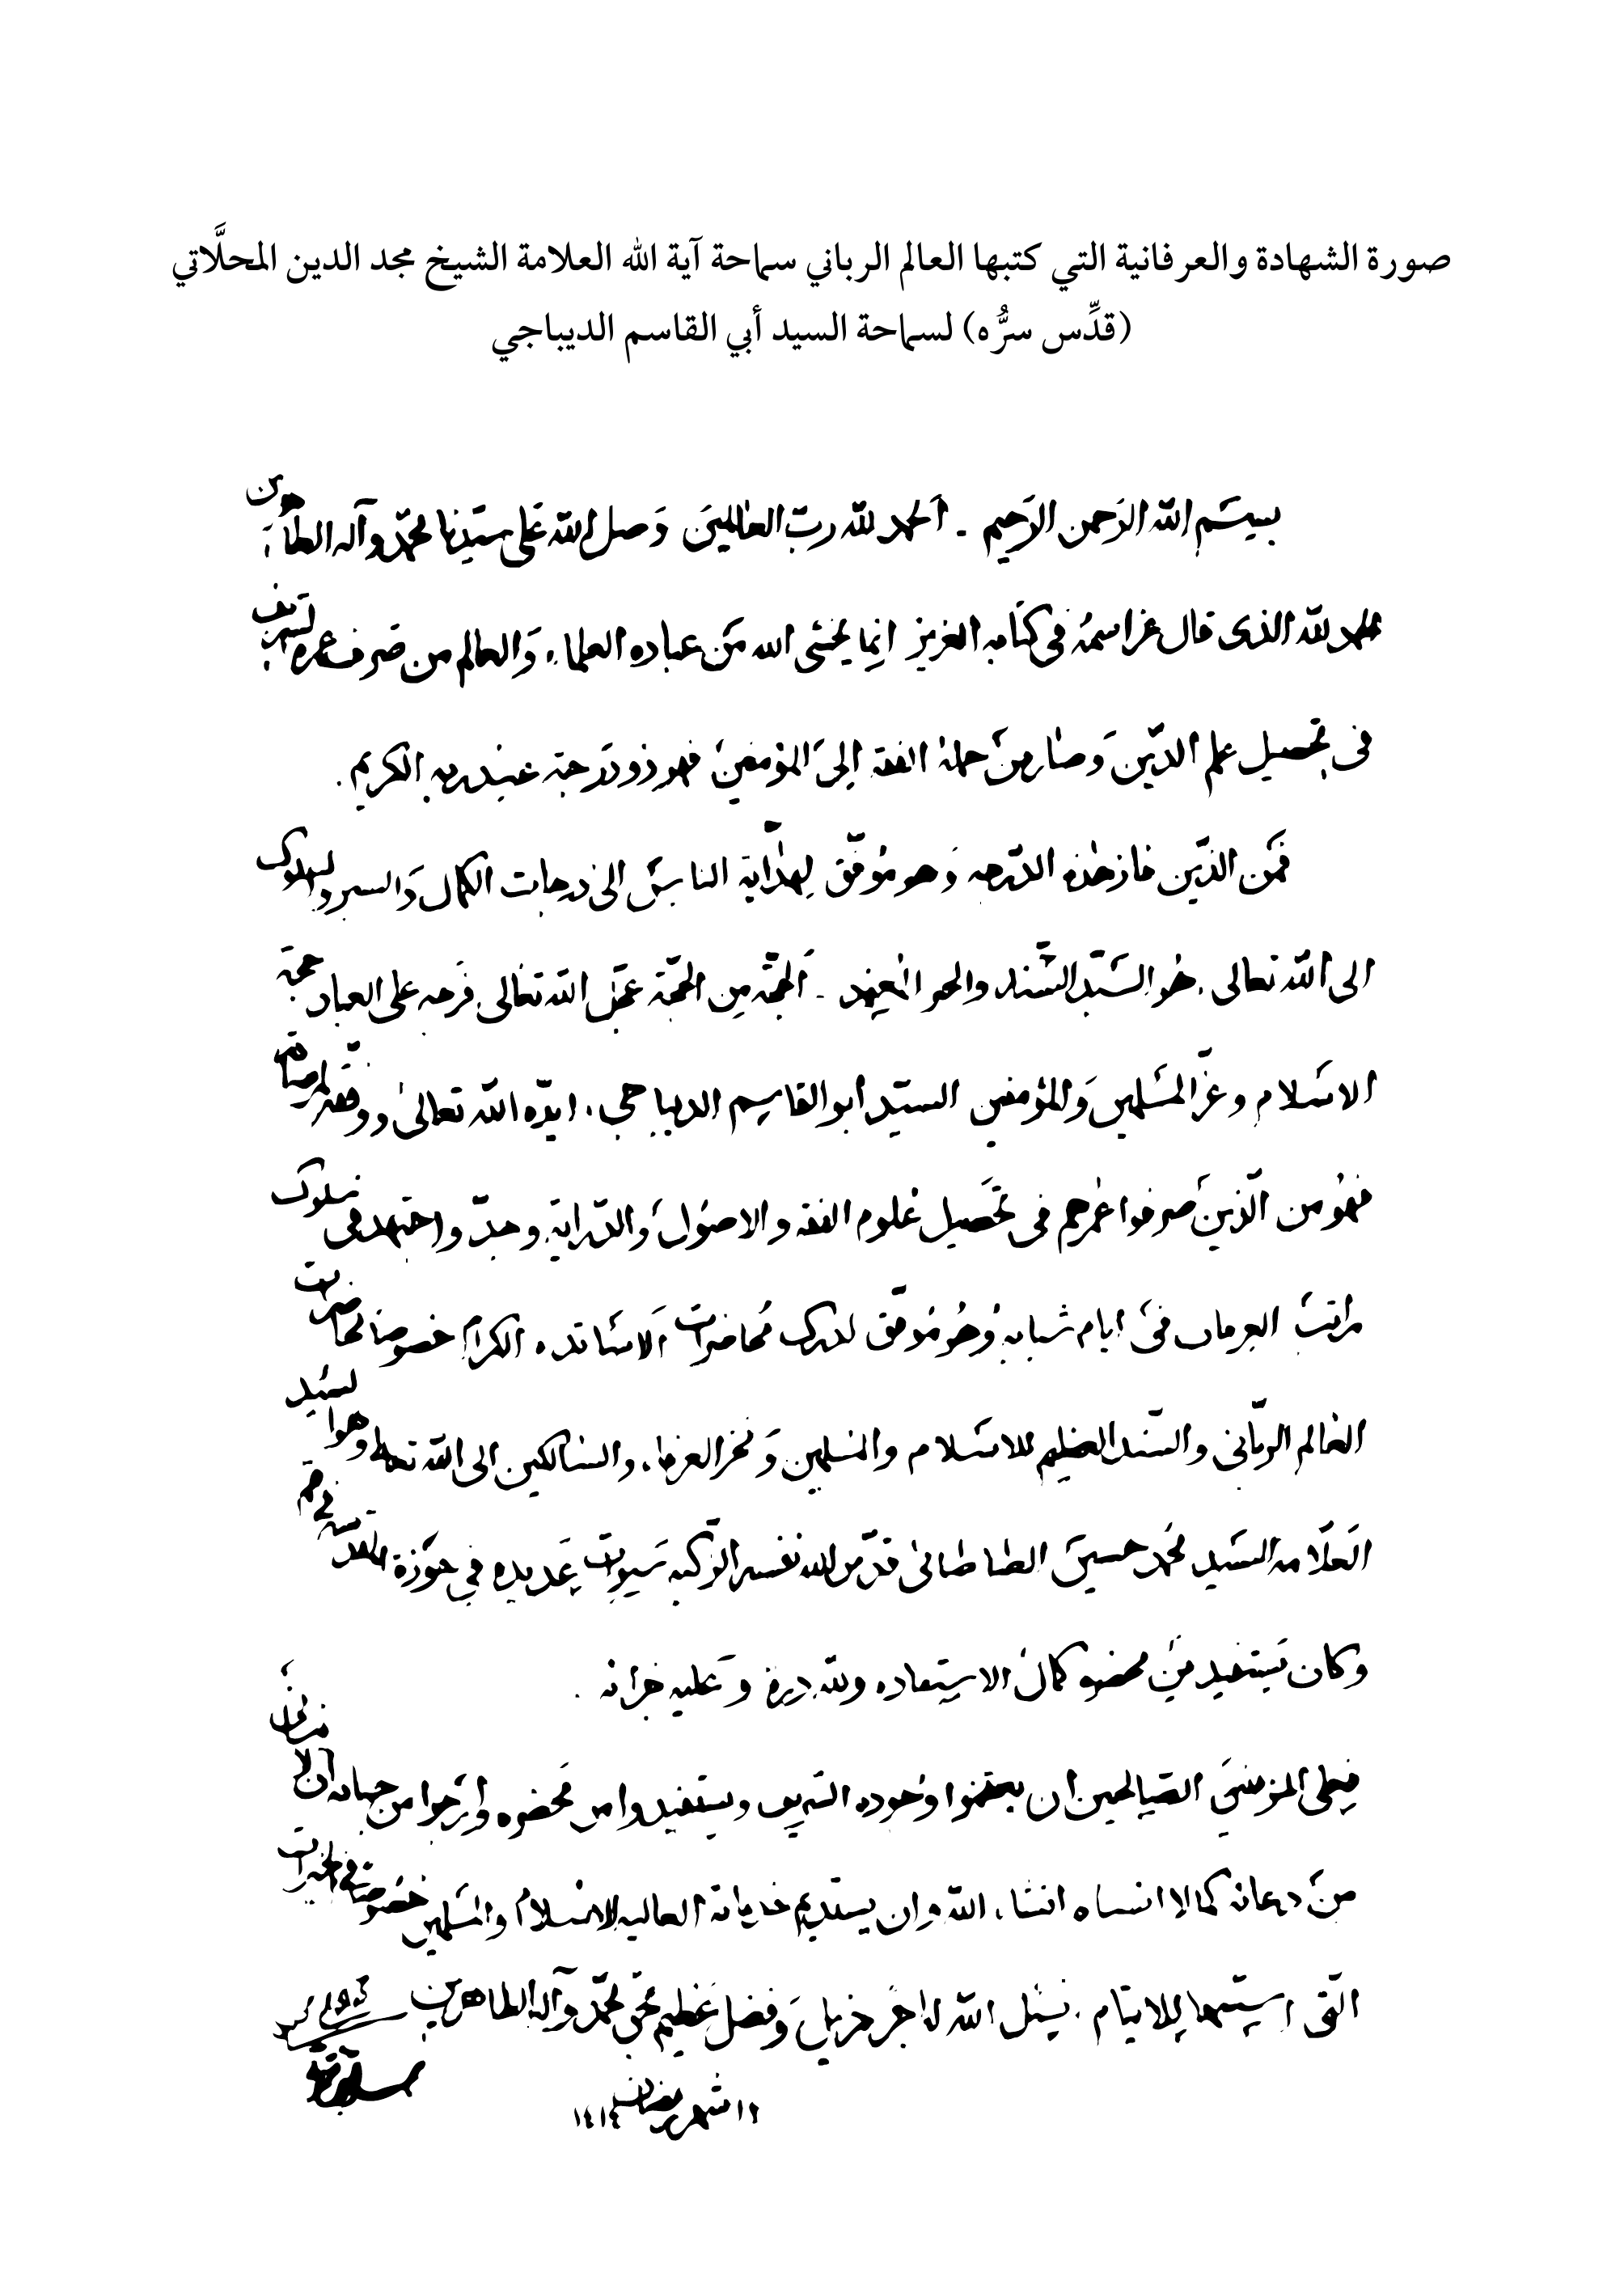 صورة الشهادة والعرفانية التي كتبها العالم الرباني سماحة آية الله العلامة الشيخ مجد الدين المحلَّاتي
(قدِّس سرُّه) لسماحة السيد أبي القاسم الديباجي
بسم الله الرحمن الرحيم . الحمد لله رب العالمين وصل الله على سيدنا محمد وآله الطاهرين
الحمد لله الذى قال عز اسمه فى كتابه العزيز انما يخشى الله من عباده العلماء والعالم من صرف عمره الشريف
فى تحصيل علم الدين وصار من حملة الفقه الى المؤمنين فهو ذو درجة عند ربه الكريم .
فمن الذين فاز بهذه الدرجه وهو موفق لهداية الناس الى درجات الكمال والسير والسلوك
الى الله تعالى . هو السيد السند والحبر المعتمد . الحجة من الحجة عجل الله تعالى فرجه على العباد حجة
الاسلام وعز المسلمين والمؤمنين السيد ابو القاسم الديباجي . ايده الله تعالى ووفقه لمرضاته
فهو من الذين صرفوا عمرهم فى تحصيل علوم الفقه والاصول والدراية وجد واجتهد فى سلوك
مراتب العرفان فى ايام شبابه وهو موفق لدرك محاضرات الاساتده الكرام خصوصا محاضرات
العالم الربانى والسند العظيم للاسلام والمسلمين وفخر العرفاء والسالكين الى الله تعالى وهو السيد
العلامه السيد محمد حسين الطباطبائى قدس الله نفسه الزكيه سنوات عديده في حوزة المقدسه في قم
وكان يستفيد من محضره كمال الاستفاده ولله دره وعليه جزائه .
فعلى المؤمنين الصالحين ان يغتنموا وجوده الشريف ويستفيدوا من محضره وارجوا من جنابه ان لا
من دعائه كما لا انساه انشاء الله وان يستديم خدماته العاليه للاسلام والمسلمين خصوصا في الخيرات
التى اسسها للايتام . نسئل الله له اجر جزيل وفضل عظيم بحق محمد وآله الطاهرين
١٢ شهر رمضان ١٤١٤